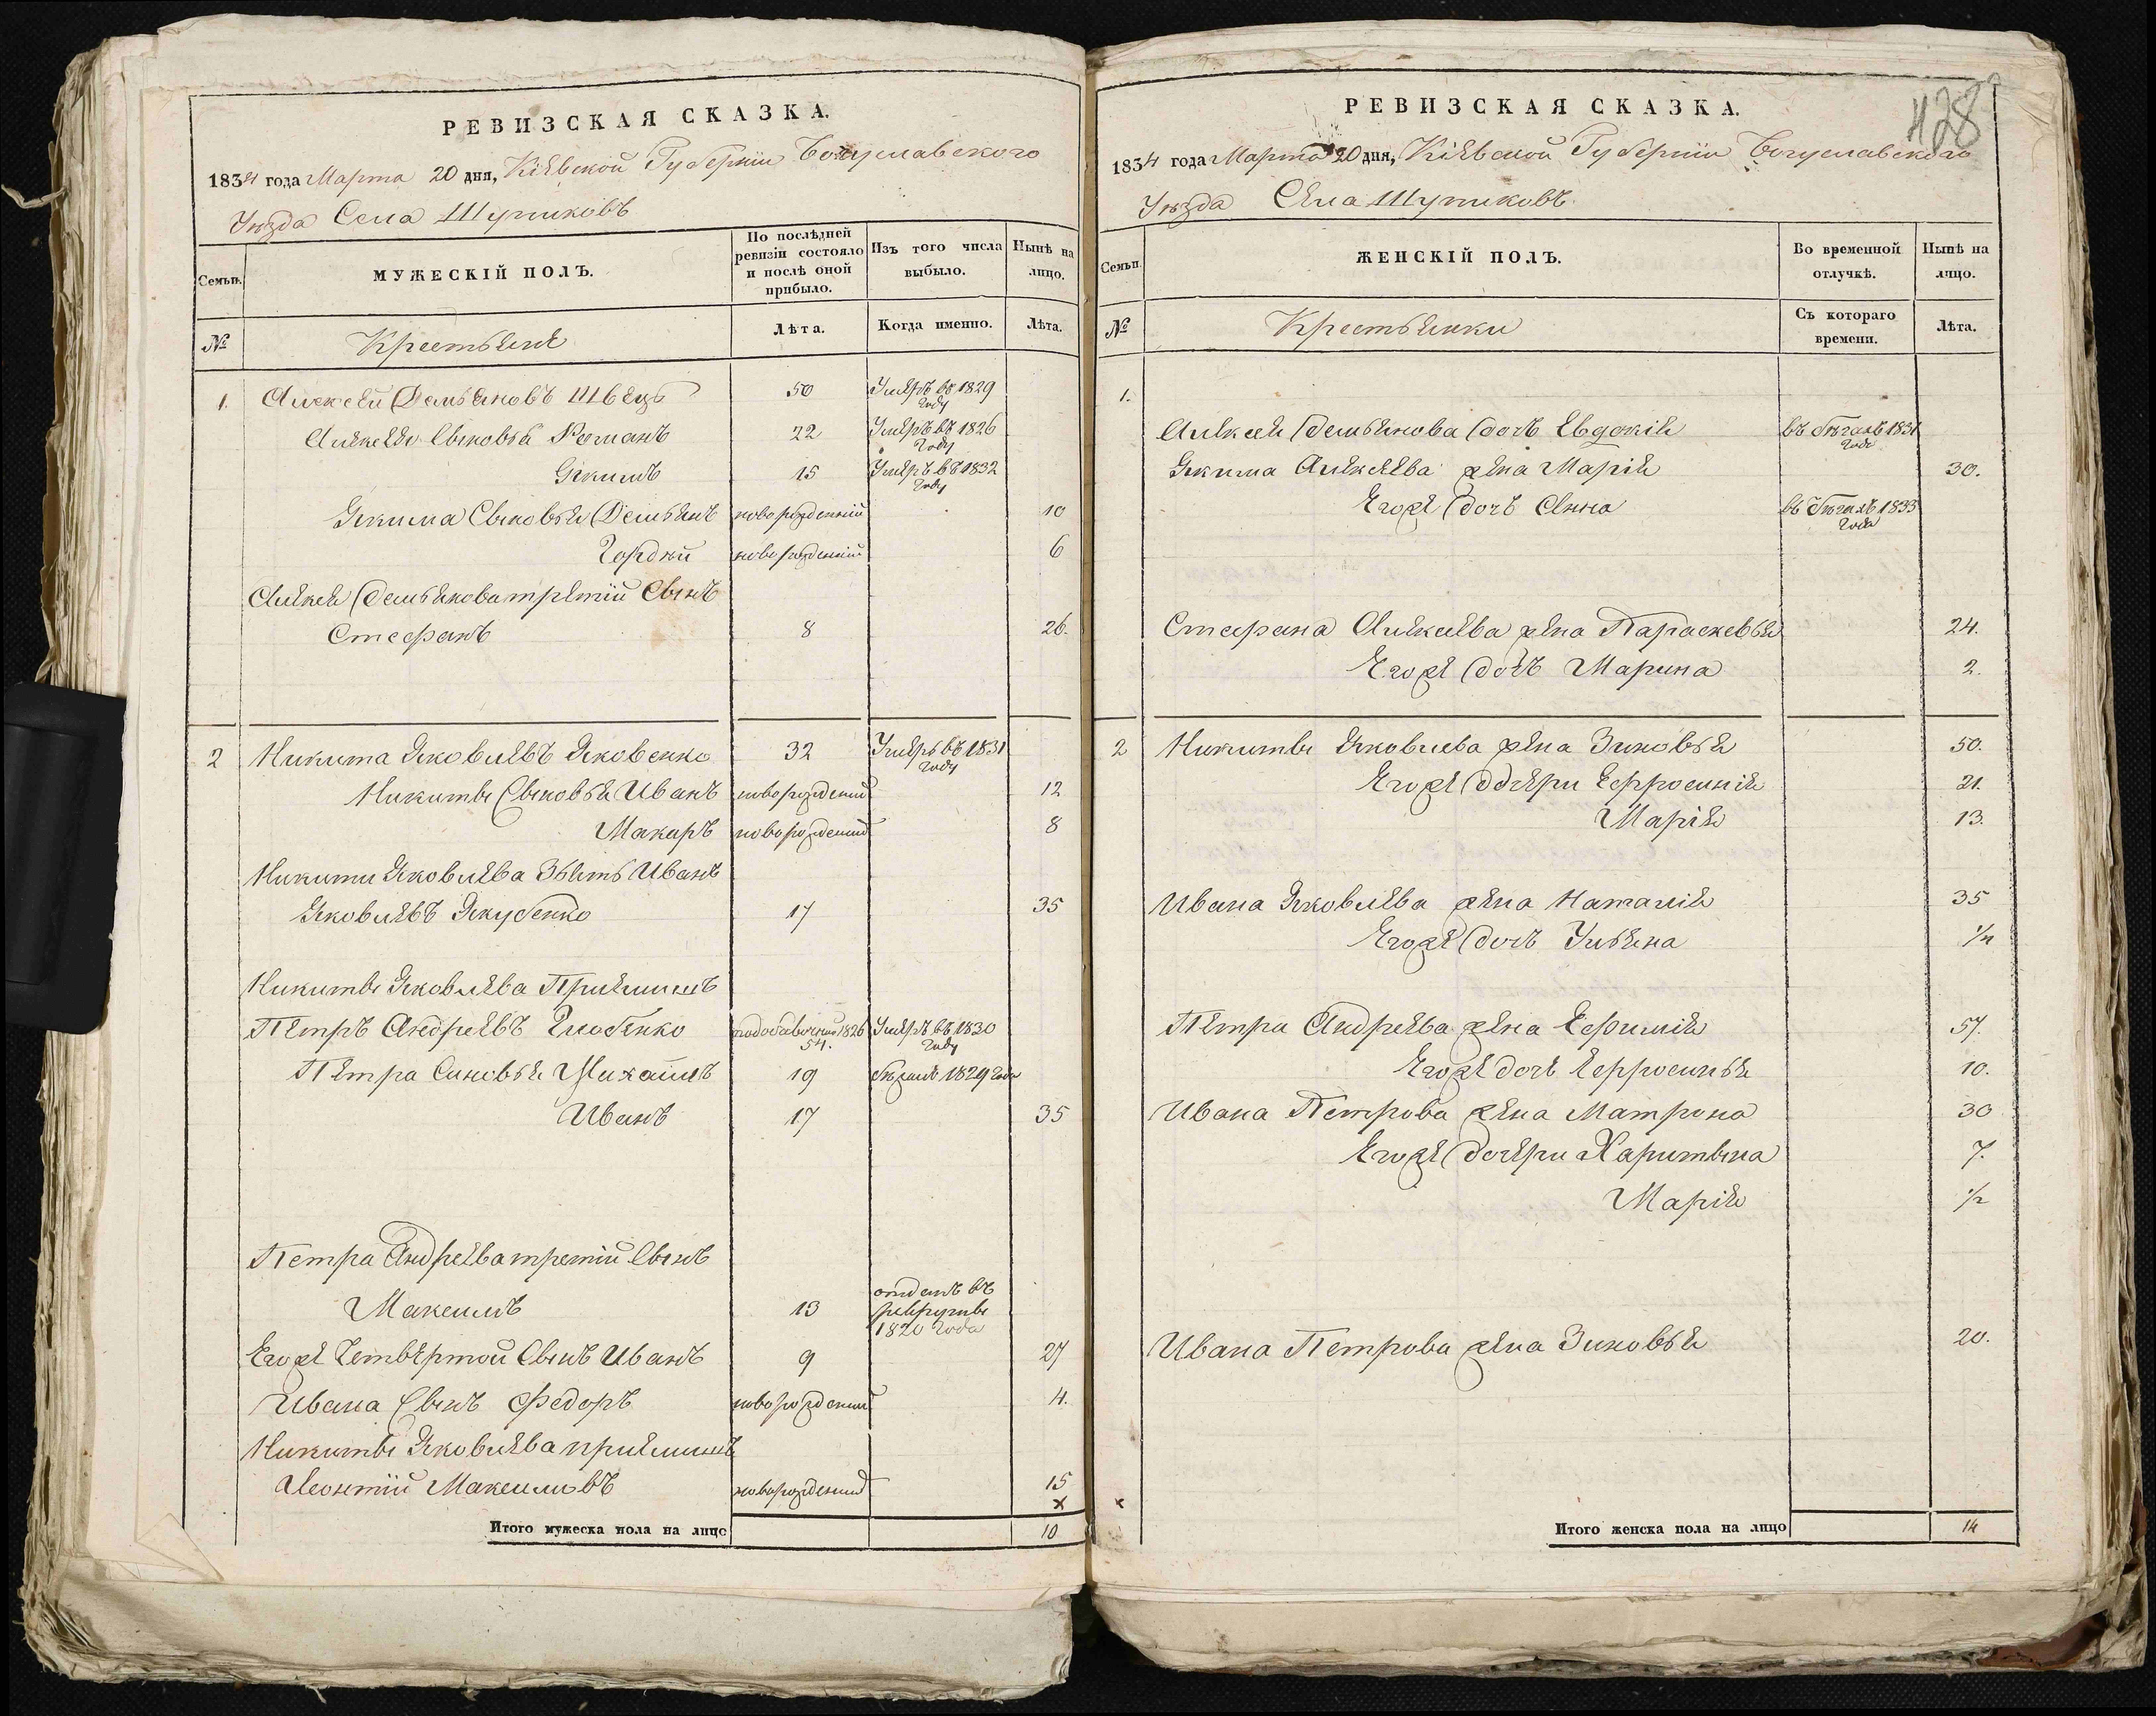 РЕВИЗСКАЯ СКАЗКА.
1834 года Марта 20 дня, Кіевской Губерніи Богуславского
Уѣзда Села Шупиковъ
Семьи.
МУЖЕСКІЙ ПОЛЪ.
По послѣдней ревизіи состояло и послѣ оной прибыло.
Изъ того числа выбыло.
Нынѣ на лицо.
№
Крестьяне
Лѣта.
Когда именно.
Лѣта.
1. Алексей Демьяновъ Швецъ 50 Умеръ въ 1829 году
Алексея Сыновья Романъ 22 Умеръ въ 1826 году
Якимъ 15 Умеръ въ 1832 году
Якима Сыновья Демьянъ новорожденный 10
Гордей новорожденный 6
Алексея Демьянова третий Сынъ
Стефанъ 8 26.
2 Никита Яковлевъ Яковенко 32 Умеръ въ 1831 году
Никиты Сыновья Иванъ новорожденый 12
Макаръ новорожденый 8
Никити Яковлева Зять Иванъ
Яковлевъ Якубенко 17 35
Никиты Яковлева Приемишъ
Петръ Андреевъ 1826 54. Умеръ въ 1830 году
Петра Синовья Михайлъ 19 Бежалъ 1829 года
Иванъ 17 35
Петра Андреева третій Сынъ
Максимъ 13 отданъ въ рекруты 1820 года
Егоже Четвертой Сынъ Иванъ 9 27
Ивана Сынъ Федоръ новорожденый 4.
Никиты Яковлева приемишъ
Леонтій Максимовъ новорожденый 15
х
Итого мужеска пола на лицо 10
428
РЕВИЗСКАЯ СКАЗКА.
1834 года Марта 20 дня, Кіевской Губерніи Богуславского
Уѣзда Села Шупиковъ.
Семьи.
ЖЕНСКІЙ ПОЛЪ.
Во временной отлучкѣ.
Нынѣ на лицо.
№
Крестьянки
Съ котораго времени.
Лѣта.
1.
Алексея Демьянова дочь Евдокія въ бѣгахъ 1831 года
Якима Алексеева жена Марія 30.
Егоже дочь Анна въ бѣгахъ 1833 года
Стефана Алексеева жена Параскевья 24.
Егоже дочь Марина 2.
2 Никиты Яковлева жена Зиновья 50.
Егоже дочери Ефросинія 21.
Марія 13.
Ивана Яковлева жена Наталія 35
Егоже дочь Ульяна 1/2
Петра Андреева жена Ефимія 57.
Егоже дочь Ефросинья 10.
Ивана Петрова жена Матрона 30
Егоже дочери Харитына 7.
Марія 1/2
Ивана Петрова жена Зиновья 20.
х
Итого женска пола на лицо 14